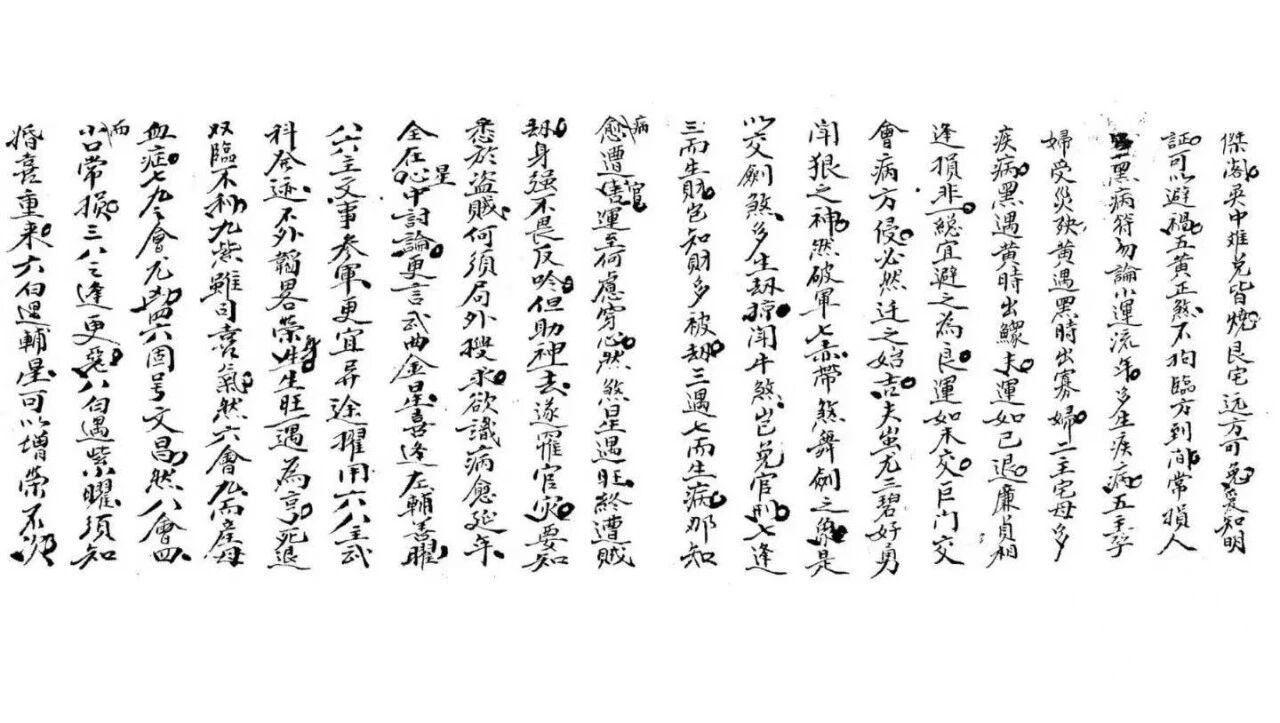 傑阁巽中难兑皆燒艮宅远方可免爰知明
証可以避禍五黄正煞不拘臨方到间常損人
黑病符勿論小運流年多生疾病五主孕
婦受災殃黄遇黑時出寡婦二主宅母多
疾病黑遇黄時出鰥夫運如已退廉貞相
逢損非一総宜避之為良運如未交巨门交
會病方侵必然迁之始吉夫蚩尤三碧好勇
闹狠之神然破軍七赤帶煞舞劍之象是
以交劍煞多生刼掠闹牛煞豈免官刑七逢
三而生財岂知財多被刼三遇七而生病那知
病愈遭官運至何慮穿心然煞星遇旺終遭賊
刼身强不畏反吟但助神去遂罹官灾要知
悉於盜賊何須局外搜求欲識病愈延年
全在星中討論更言武曲金星喜逢左輔善曜
八六主文事参軍更宜异途擢用六八主武
科發迹不外韜畧榮身生旺一遇為亨死退
双臨不利九紫雖司喜氣然六會九而産母
血症七九之會尤凶四六固号文昌然八會四
而小口常损三八之逢更惡八白遇紫曜須知
婚喜重来六白遇輔星可以增榮不次